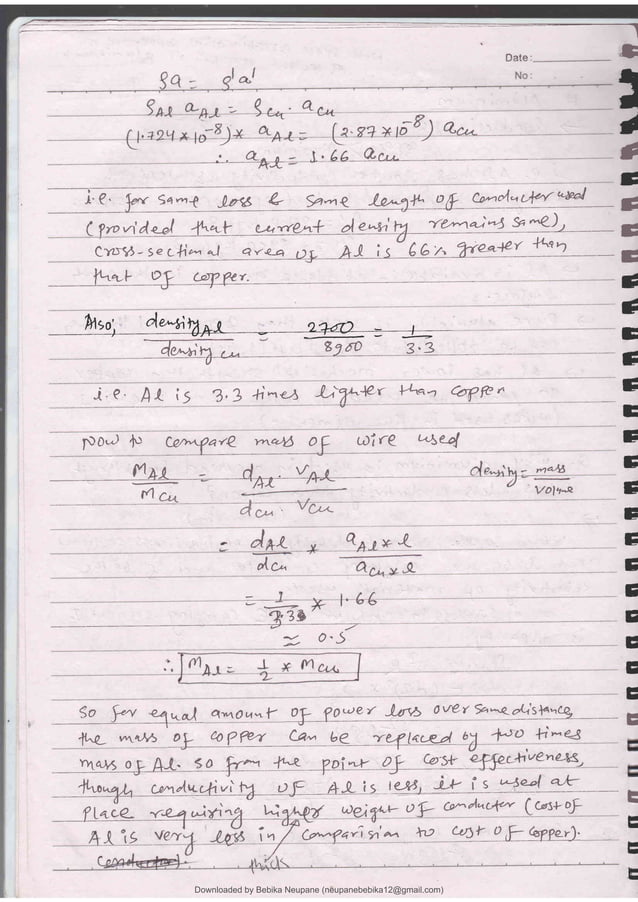 Date:
No:
ρa = ρ'a'
ρAl aAl = ρcu . acu
(1.724 * 10^-8) * aAl = (2.87 * 10^-8) acu
∴ aAl = 1.66 acu
i.e. for same loss & same length of conductor used
(provided that current density remains same),
cross-sectional area of Al is 66% greater than
that of copper.
Also; density Al / density cu = 2700 / 8900 = 1 / 3.3
i.e. Al is 3.3 times lighter than copper
Now to compare mass of wire used
MAl / Mcu = dAl . VAl / dcu . Vcu density = mass / volume
= dAl / dcu * aAl * l / acu * l
= 1 / 3.3 * 1.66
≈ 0.5
∴ MAl = 1/2 * Mcu
So for equal amount of power loss over same distance,
the mass of copper can be replaced by two times
mass of Al. So from the point of cost effectiveness,
though conductivity of Al is less, it is used at
place requiring higher weight of conductor (cost of
Al is very less in comparision to cost of copper).
conductor).
thick
Downloaded by Bebika Neupane (neupanebebika12@gmail.com)